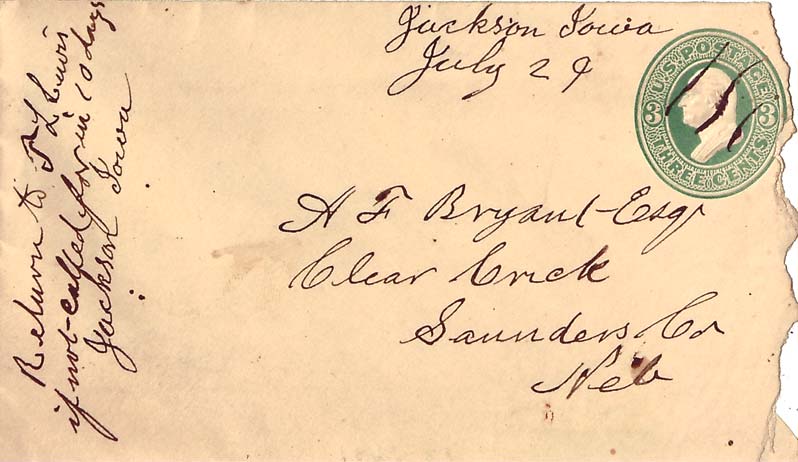 Jackson Iowa
July 29
U.S. POSTAGE
3 3
THREE CENTS
A F Bryant Esqr
Clear Crick
Saunders Co
Neb
Return to P L Lewis
if not called for in 10 days
Jackson Iowa